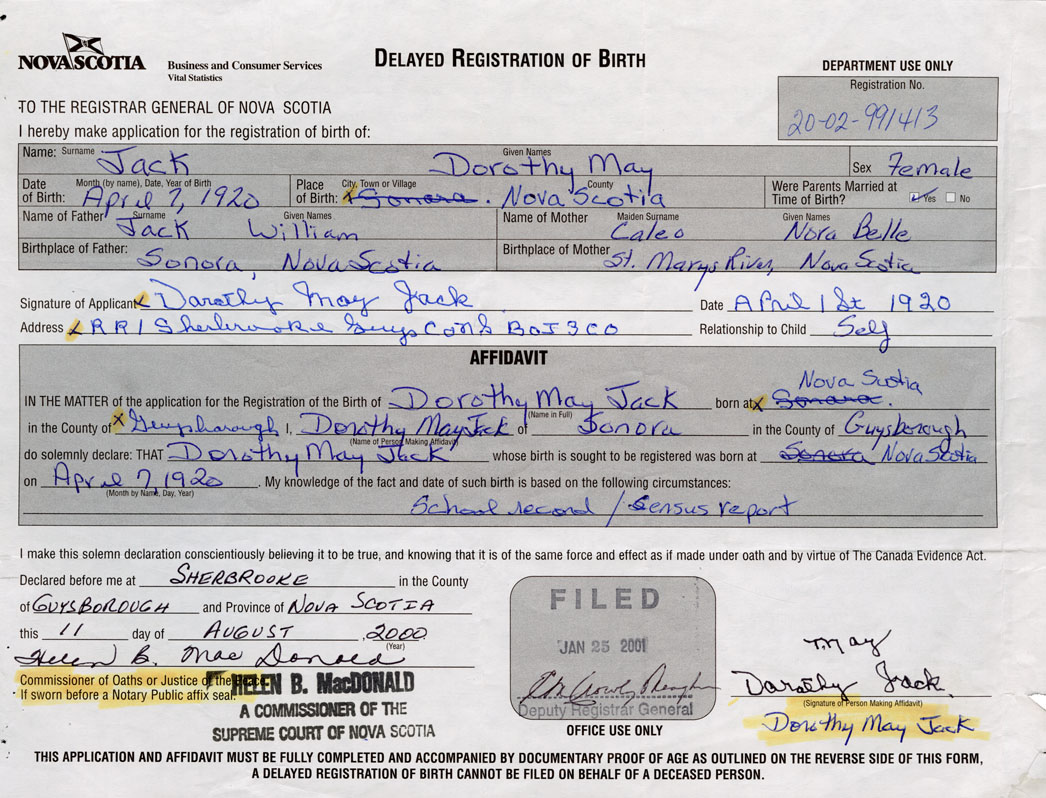 NOVA SCOTIA
Business and Consumer Services
Vital Statistics
DELAYED REGISTRATION OF BIRTH
DEPARTMENT USE ONLY
Registration No.
20-02-991413
TO THE REGISTRAR GENERAL OF NOVA SCOTIA
I hereby make application for the registration of birth of:
Name: Surname Jack Given Names Dorothy May Sex Female
Date of Birth: Month (by name), Date, Year of Birth April 7, 1920 Place of Birth: City, Town or Village x Sonora. County Nova Scotia Were Parents Married at Time of Birth? Yes No
Name of Father Surname Jack Given Names William Name of Mother Maiden Surname Caleo Given Names Nora Belle
Birthplace of Father: Sonora, Nova Scotia Birthplace of Mother St. Marys River, Nova Scotia
Signature of Applicant x Darothy May Jack Date April 1st 1920
Address x RR1 Sherbrooke Guys Co NS B0J 3C0 Relationship to Child Self
AFFIDAVIT
Nova Scotia
IN THE MATTER of the application for the Registration of the Birth of Dorothy May Jack born at x Sonora.
(Name in Full)
in the County of x Guysborough I, Dorothy May Jack of Sonora in the County of Guysborough
(Name of Person Making Affidavit)
do solemnly declare: THAT Dorothy May Jack whose birth is sought to be registered was born at Sonora Nova Scotia
on April 7, 1920. My knowledge of the fact and date of such birth is based on the following circumstances:
(Month by Name, Day, Year)
School record / Census report
I make this solemn declaration conscientiously believing it to be true, and knowing that it is of the same force and effect as if made under oath and by virtue of The Canada Evidence Act.
Declared before me at SHERBROOKE in the County
of GUYSBOROUGH and Province of NOVA SCOTIA
this 11 day of AUGUST, 2000.
(Year)
Helen B. MacDonald
Commissioner of Oaths or Justice of the Peace
If sworn before a Notary Public affix seal.
HELEN B. MacDONALD
A COMMISSIONER OF THE
SUPREME COURT OF NOVA SCOTIA
FILED
JAN 25 2001
Deputy Registrar General
OFFICE USE ONLY
May
Darothy Jack.
(Signature of Person Making Affidavit)
Dorothy May Jack
THIS APPLICATION AND AFFIDAVIT MUST BE FULLY COMPLETED AND ACCOMPANIED BY DOCUMENTARY PROOF OF AGE AS OUTLINED ON THE REVERSE SIDE OF THIS FORM,
A DELAYED REGISTRATION OF BIRTH CANNOT BE FILED ON BEHALF OF A DECEASED PERSON.